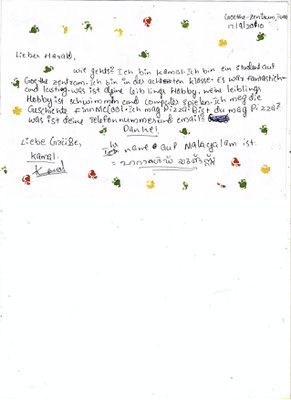 Goethe-Zentrum,
17/1/2010
Lieber Harald,
wie gehts? Ich bin kamal. Ich bin ein student auf
Goethe zentrum. ich bin in das achten klasse. Es war fantastich
und lustig. was ist deine leiblings Hobby. meine leiblings
Hobby ist schwimmen and computer spielen. ich meg die
Geschichte FinnMcCool. ich mag Pizza. Bist du mag Pizza?
was ist deine Telefonnummer und email?
Danke!
Liebe Grüße,
kamal.
Kamal
Ich name auf Malayalam ist
=